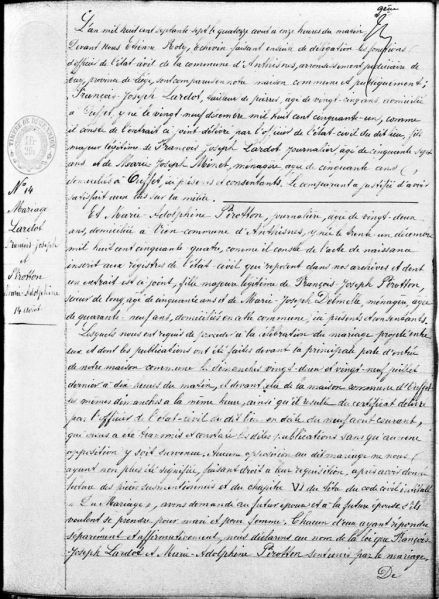 9ème
L'an mil huit cent septante sept le quatorze août à onze heures du matin
Devant Nous Etienne Rody, échevin faisant en suite de dérogation les fonctions
d'officier de l'état civil de la commune d'Anthisnes, arrondissement judiciaire de
Huy, province de Liége, sont comparus en notre maison commune et publiquement ;
François-Joseph Lardot, tailleur de pierres, âgé de vingt-cinq ans, domicilié
à Ouffet, y né le vingt-neuf décembre mil huit cent cinquante-un, comme
il conste de l'extrait ci joint délivré par l'officier de l'état civil du dit lieu, fils
majeur légitime de François Joseph Lardot journalier âgé de cinquante sept
ans et de Marie Joseph ménagère âgée de cinquante ans,
domiciliés à Ouffet, ici présents et consentants. Le comparant a justifié d'avoir
satisfait aux lois sur la milice.
Et Marie-Adolphine Pirotton, journalière, âgée de vingt-deux
ans, domiciliée à Vien commune d'Anthisnes, y née le trente un décembre
mil huit cent cinquante quatre, comme il conste de l'acte de naissance
inscrit aux registres de l'état-civil qui reposent dans nos archives et dont
un extrait est ci joint, fille majeure légitime de François-Joseph Pirotton,
scieur de long, âgé de cinquante ans et de Marie-Joseph Delmelle, ménagère, âgée
de quarante-neuf ans, domiciliés en cette commune, ici présents et consentants.
Lesquels nous ont requis de procéder à la célébration du mariage projeté entre
eux et dont les publications ont été faites devant la principale porte d'entrée
de notre maison commune les dimanches vingt-deux et vingt-neuf juillet
dernier à dix heures du matin, et devant celle de la maison commune d'Ouffet
les mêmes dimanches à la même heure, ainsi qu'il résulte du certificat délivré
par l'officier de l'état-civil du dit lieu en date du neuf août courant,
qui nous a été transmis et constate les dites publications sans qu'aucune
opposition y soit survenue. Aucune opposition au dit mariage ne nous
ayant non plus été signifiée, faisant droit à leur réquisition, après avoir donné
lecture des pièces susmentionnées et du chapitre VI du titre du code civil intitulé
« Du Mariage », avons demandé au futur époux et à la future épouse s'ils
veulent se prendre pour mari et pour femme : Chacun d'eux ayant répondu
séparément et affirmativement, nous déclarons au nom de la loi que François-
Joseph Lardot et Marie-Adolphine Pirotton sont unis par le mariage.
De
N° 14
Mariage
Lardot
François Joseph
et
Pirotton
Marie-Adolphine
14 août